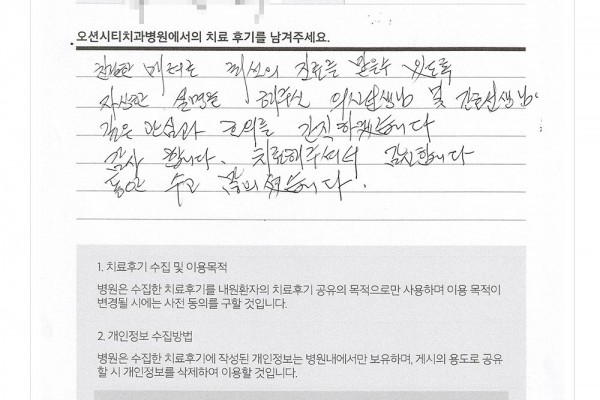 오션시티치과병원에서의 치료 후기를 남겨주세요.
친절한 배려로 최선의 진료를 받을수 있도록
자상한 설명을 해주신 의사선생님 및 간호선생님
깊은 관심과 호의를 간직하겠습니다
감사 합니다. 치료해주셔서 감사합니다
동안 수고 많이 했습니다.
1. 치료후기 수집 및 이용목적
병원은 수집한 치료후기를 내원환자의 치료후기 공유의 목적으로만 사용하며 이용 목적이
변경될 시에는 사전 동의를 구할 것입니다.
2. 개인정보 수집방법
병원은 수집한 치료후기에 작성된 개인정보는 병원내에서만 보유하며, 게시의 용도로 공유
할 시 개인정보를 삭제하여 이용할 것입니다.